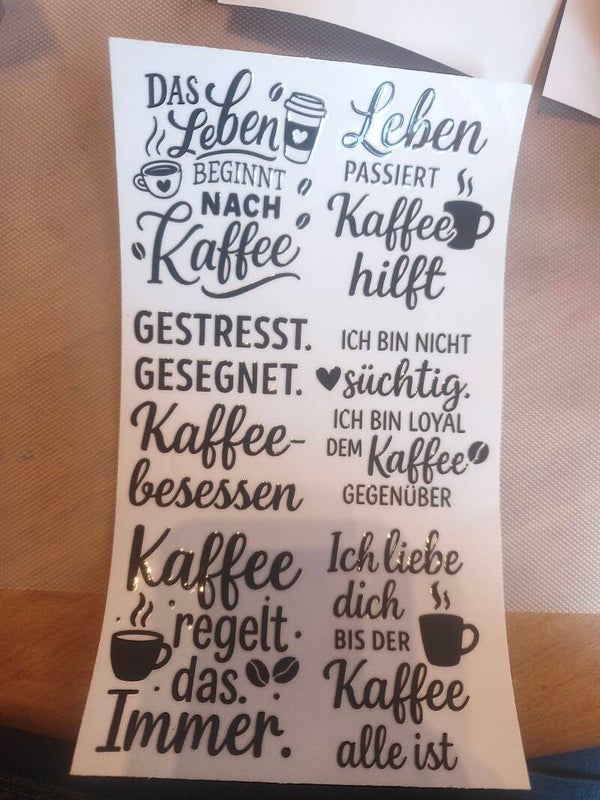 DAS
Leben
BEGINNT
NACH
Kaffee
Leben
PASSIERT
Kaffee
hilft
GESTRESST.
GESEGNET.
Kaffee-
besessen
ICH BIN NICHT
süchtig.
ICH BIN LOYAL
DEM Kaffee
GEGENÜBER
Kaffee
regelt
das.
Immer.
Ich liebe
dich
BIS DER
Kaffee
alle ist